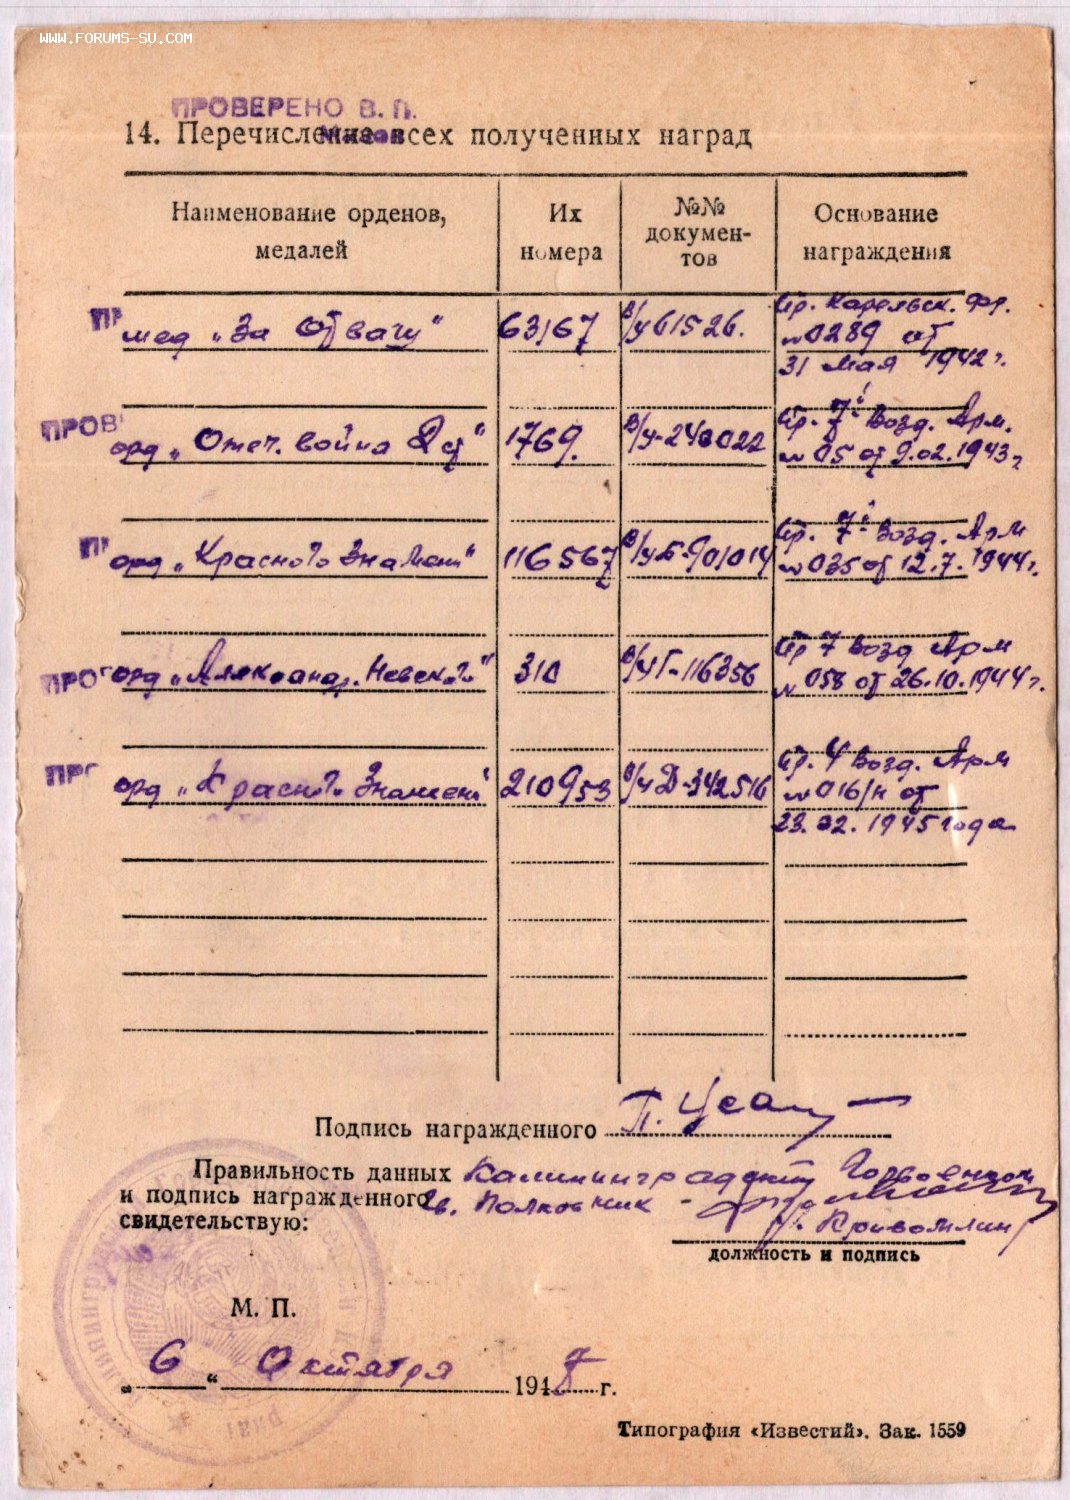 WWW.FORUMS-SU.COM
ПРОВЕРЕНО В. П.
14. Перечисление всех полученных наград
Наименование орденов, медалей
Их номера
№№ докумен-тов
Основание награждения
ПР
мед „За Отвагу“ 63167 в/у 61526. Пр. Карельск. фр.
№0289 от
31 мая 1942 г.
ПРОВ
орд „Отеч. война 2 ст“ 1769. в/у-240022 Пр. 7й Возд. Арм.
№05 от 9.02.1943 г
ПР
орд „Красного Знамени“ 116567 в/у Б-901014 Пр. 7й Возд. Арм
№035 от 12.7.1944 г.
ПРО
орд „Александ. Невского“ 310 в/у Г-116356 Пр 7 Возд Арм
№058 от 26.10.1944 г.
ПРО
орд „Красного Знамени“ 210953 в/у Д-342516 Пр. 4 Возд. Арм
№016/н от
23.02.1945 года
Подпись награжденного П.
Правильность данных Калининградский Горвоенком
и подпись награжденного Гв. Полковник -
свидетельствую:
должность и подпись
М. П.
„6“ Октября 1947 г.
Типография «Известий». Зак. 1559